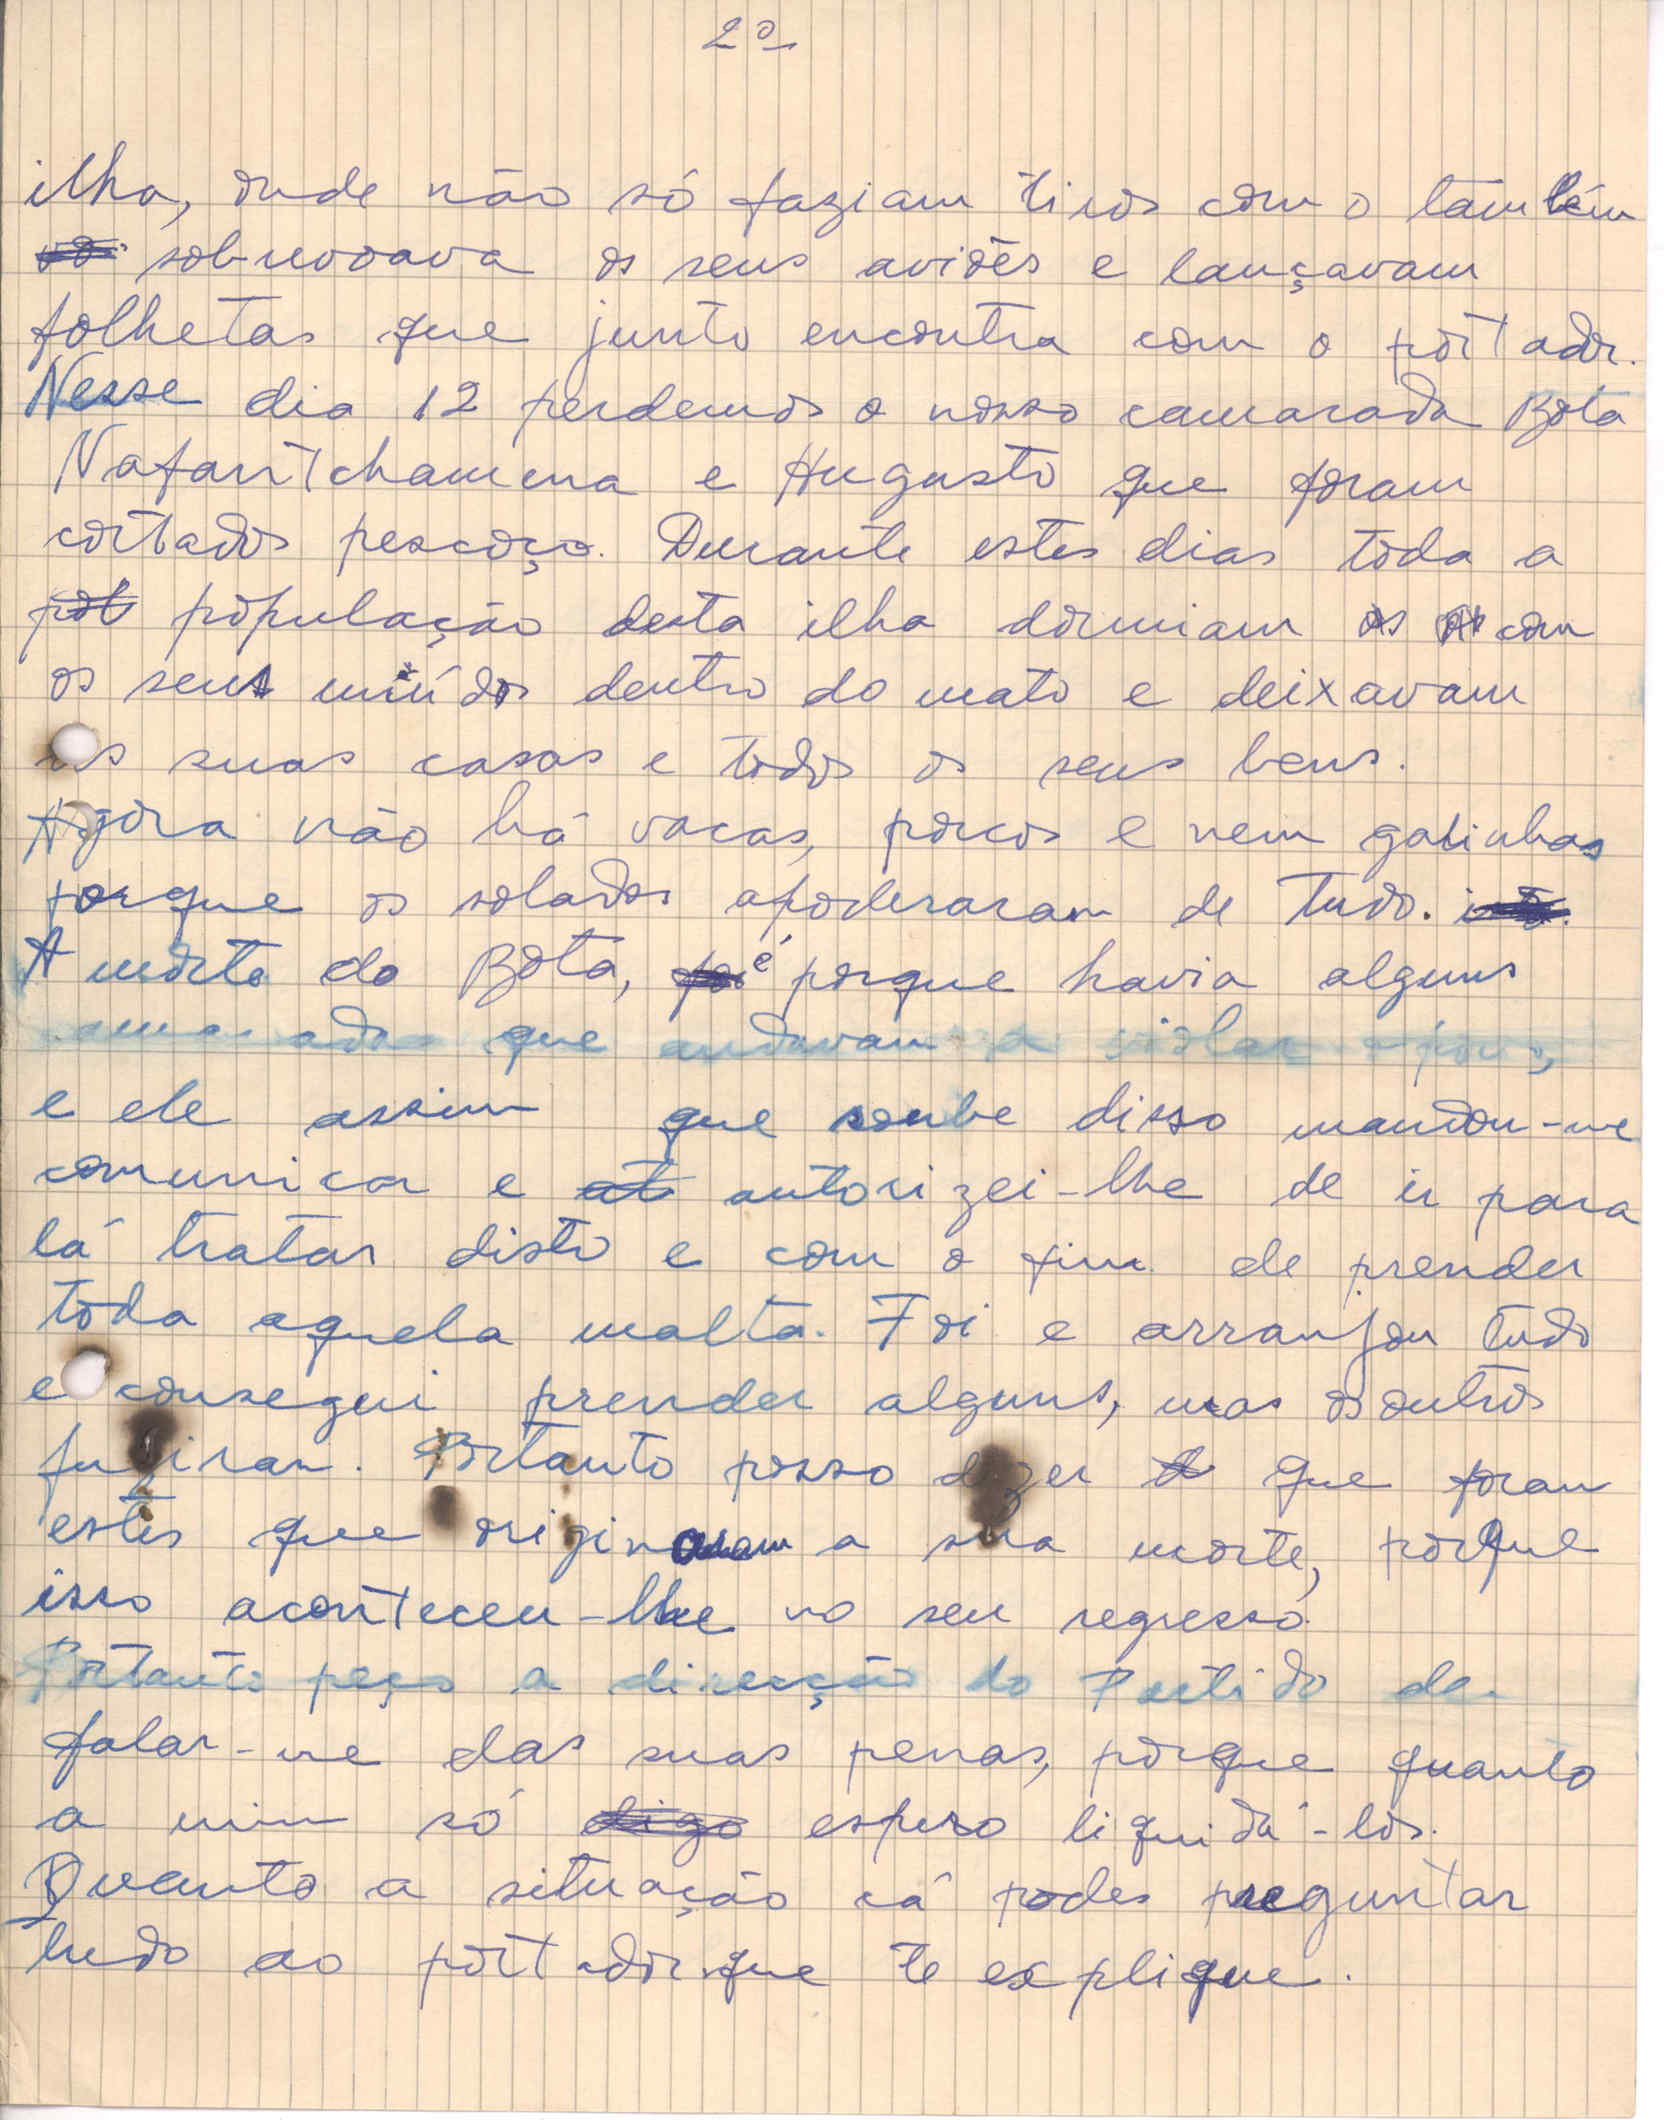 2º
ilha, onde não só faziam tiros como também
sobrevoava os seus aviões e lançavam
folhetas que junto encontra com o portador.
Nesse dia 12 perdemos o nosso camarada Bota
Nafantchamena e Hugusto que foram
cortados pescoço. Durante estes dias toda a
pob população desta ilha dormiam os com
os seus miúdos dentro do mato e deixavam
as suas casas e todos os seus bens.
Agora não há vacas, porcos e nem galinhas
porque os solados apoderaram de tudo.
A morte do Bota, foi é porque havia alguns
camaradas que andavam a violar o povo,
e ele assim que soube disso mandou-me
comunicar e at autorizei-lhe de ir para
lá tratar disto e com o fim de prender
toda aquela malta. Foi e arranjou tudo
e consegui prender alguns, mas os outros
fugiram. Portanto posso dizer que foram
estes que originaram a sua morte, porque
isso aconteceu-lhe no seu regresso.
Portanto peço a direcção do Partido de
falar-me das suas penas, porque quanto
a mim só digo espero liquidá-los.
Quanto a situação cá podes preguntar
tudo ao portador que te explique.